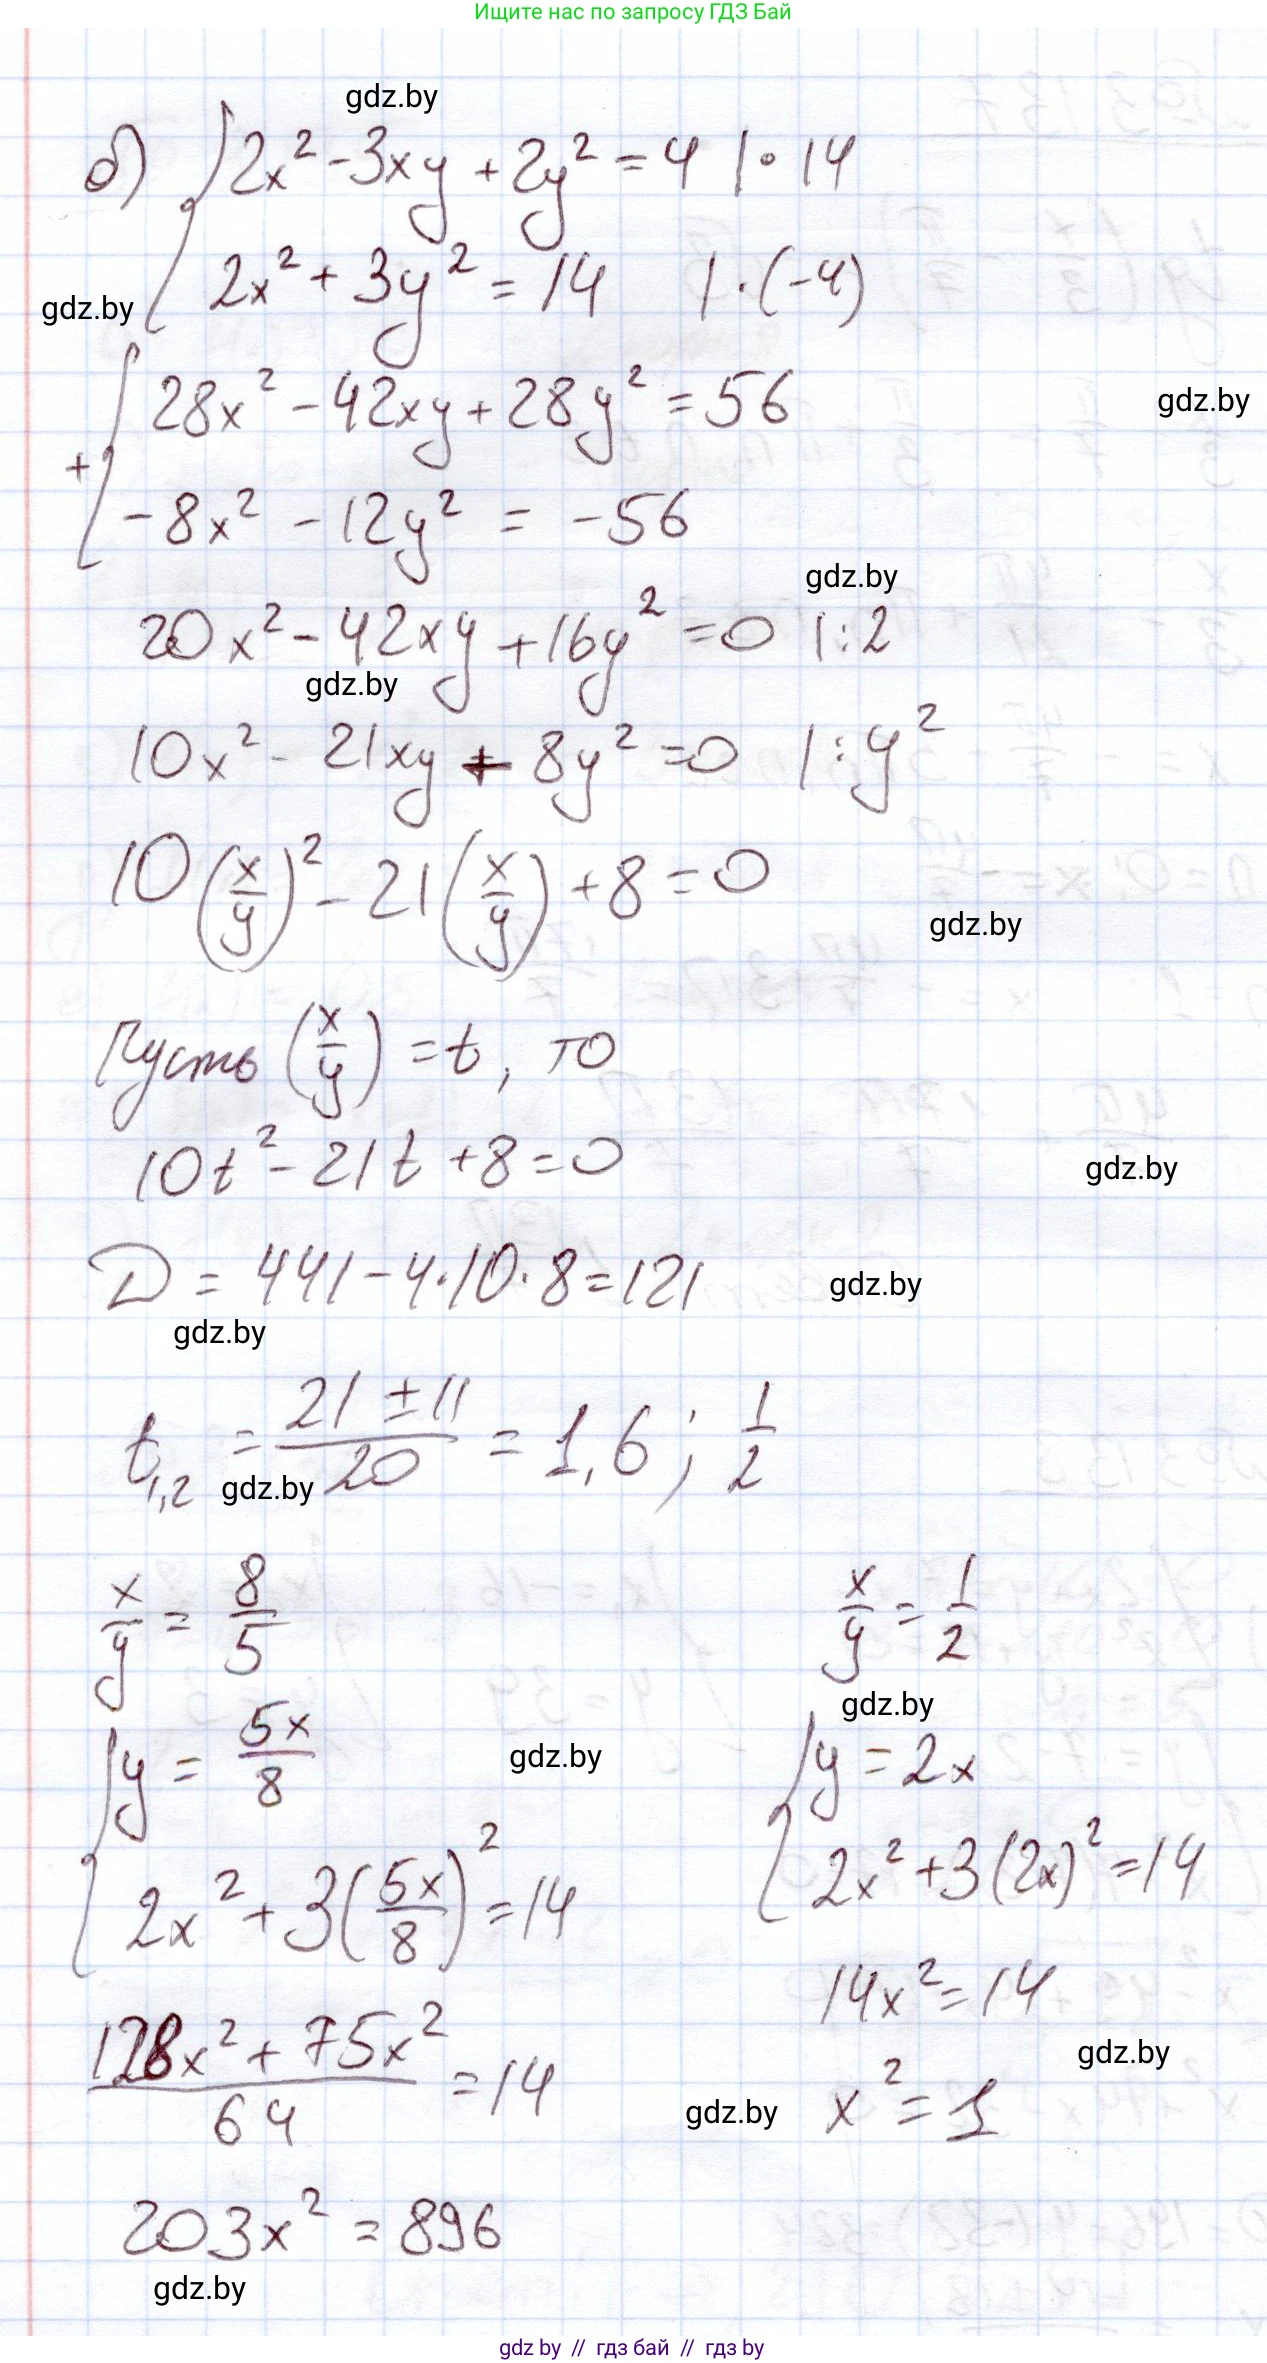 Ищите нас по запросу ГДЗ Бай
gdz.by
б) { 2x² - 3xy + 2y² = 4 | · 14
2x² + 3y² = 14 | · (-4)
gdz.by
+ { 28x² - 42xy + 28y² = 56
gdz.by
-8x² - 12y² = -56
gdz.by
20x² - 42xy + 16y² = 0 | : 2
gdz.by
10x² - 21xy + 8y² = 0 | : y²
10(x/y)² - 21(x/y) + 8 = 0
gdz.by
Пусть (x/y) = t, то
10t² - 21t + 8 = 0
gdz.by
D = 441 - 4·10·8 = 121
gdz.by
gdz.by
t₁,₂ = (21 ± 11)/20 = 1,6; 1/2
gdz.by
x/y = 8/5 x/y = 1/2
gdz.by
{ y = 5x/8 { y = 2x
gdz.by
2x² + 3(5x/8)² = 14 2x² + 3(2x)² = 14
14x² = 14
(128x² + 75x²)/64 = 14
gdz.by
x² = 1
gdz.by
203x² = 896
gdz.by
gdz by // гдз бай // гдз by